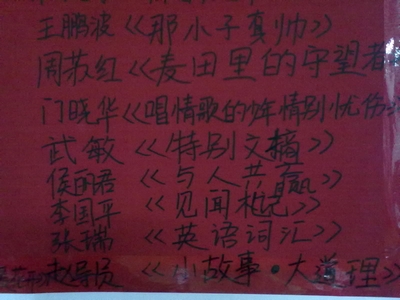 王鹏波《那小子真帅》
周苏红《麦田里的守望者
门晓华《唱情歌的少年情别忧伤
武敏《特别文摘》
侯丽君《与人共赢》
李国平《见闻札记》
张瑞《英语词汇》
赵导员《小故事·大道理》